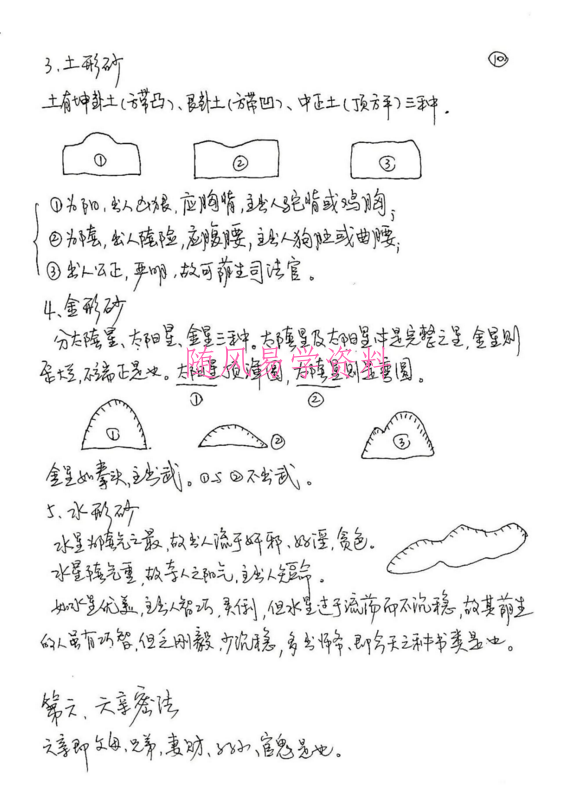 ⑩
3、土形砂
土有坤卦土(方带凸)、艮卦土(方带凹)、中正土(顶方平)三种.
① ② ③
①为阳,出人凶狠,应胸背,主出人驼背或鸡胸;
②为阴,出人阴险,应腹腰,主出人狗肚或曲腰;
③出人公正,严明,故可荫生司法官。
4、金形砂
分太阴星、太阳星、金星三种。太阴星及太阳星皆是完整之星,金星则
歪,不端正是也。太阳星顶浑圆,太阴星则是弯圆。
① ②
① ② ③
金星如拳头,主出武。①与②不出武。
5、水形砂
水星为阴气之最,故出人流于奸邪、好淫,贪色。
水星阴气重,故夺人之阳气,主出人短命。
如水星优美,主出人智巧,灵俐,但水星过于流荡而不沉稳,故其荫生
的人虽有巧智,但乏刚毅,少沉稳,多出师爷、即今天之秘书类是也。
第六、六亲密法
六亲即父母、兄弟,妻财、、官鬼是也。
随风易学资料